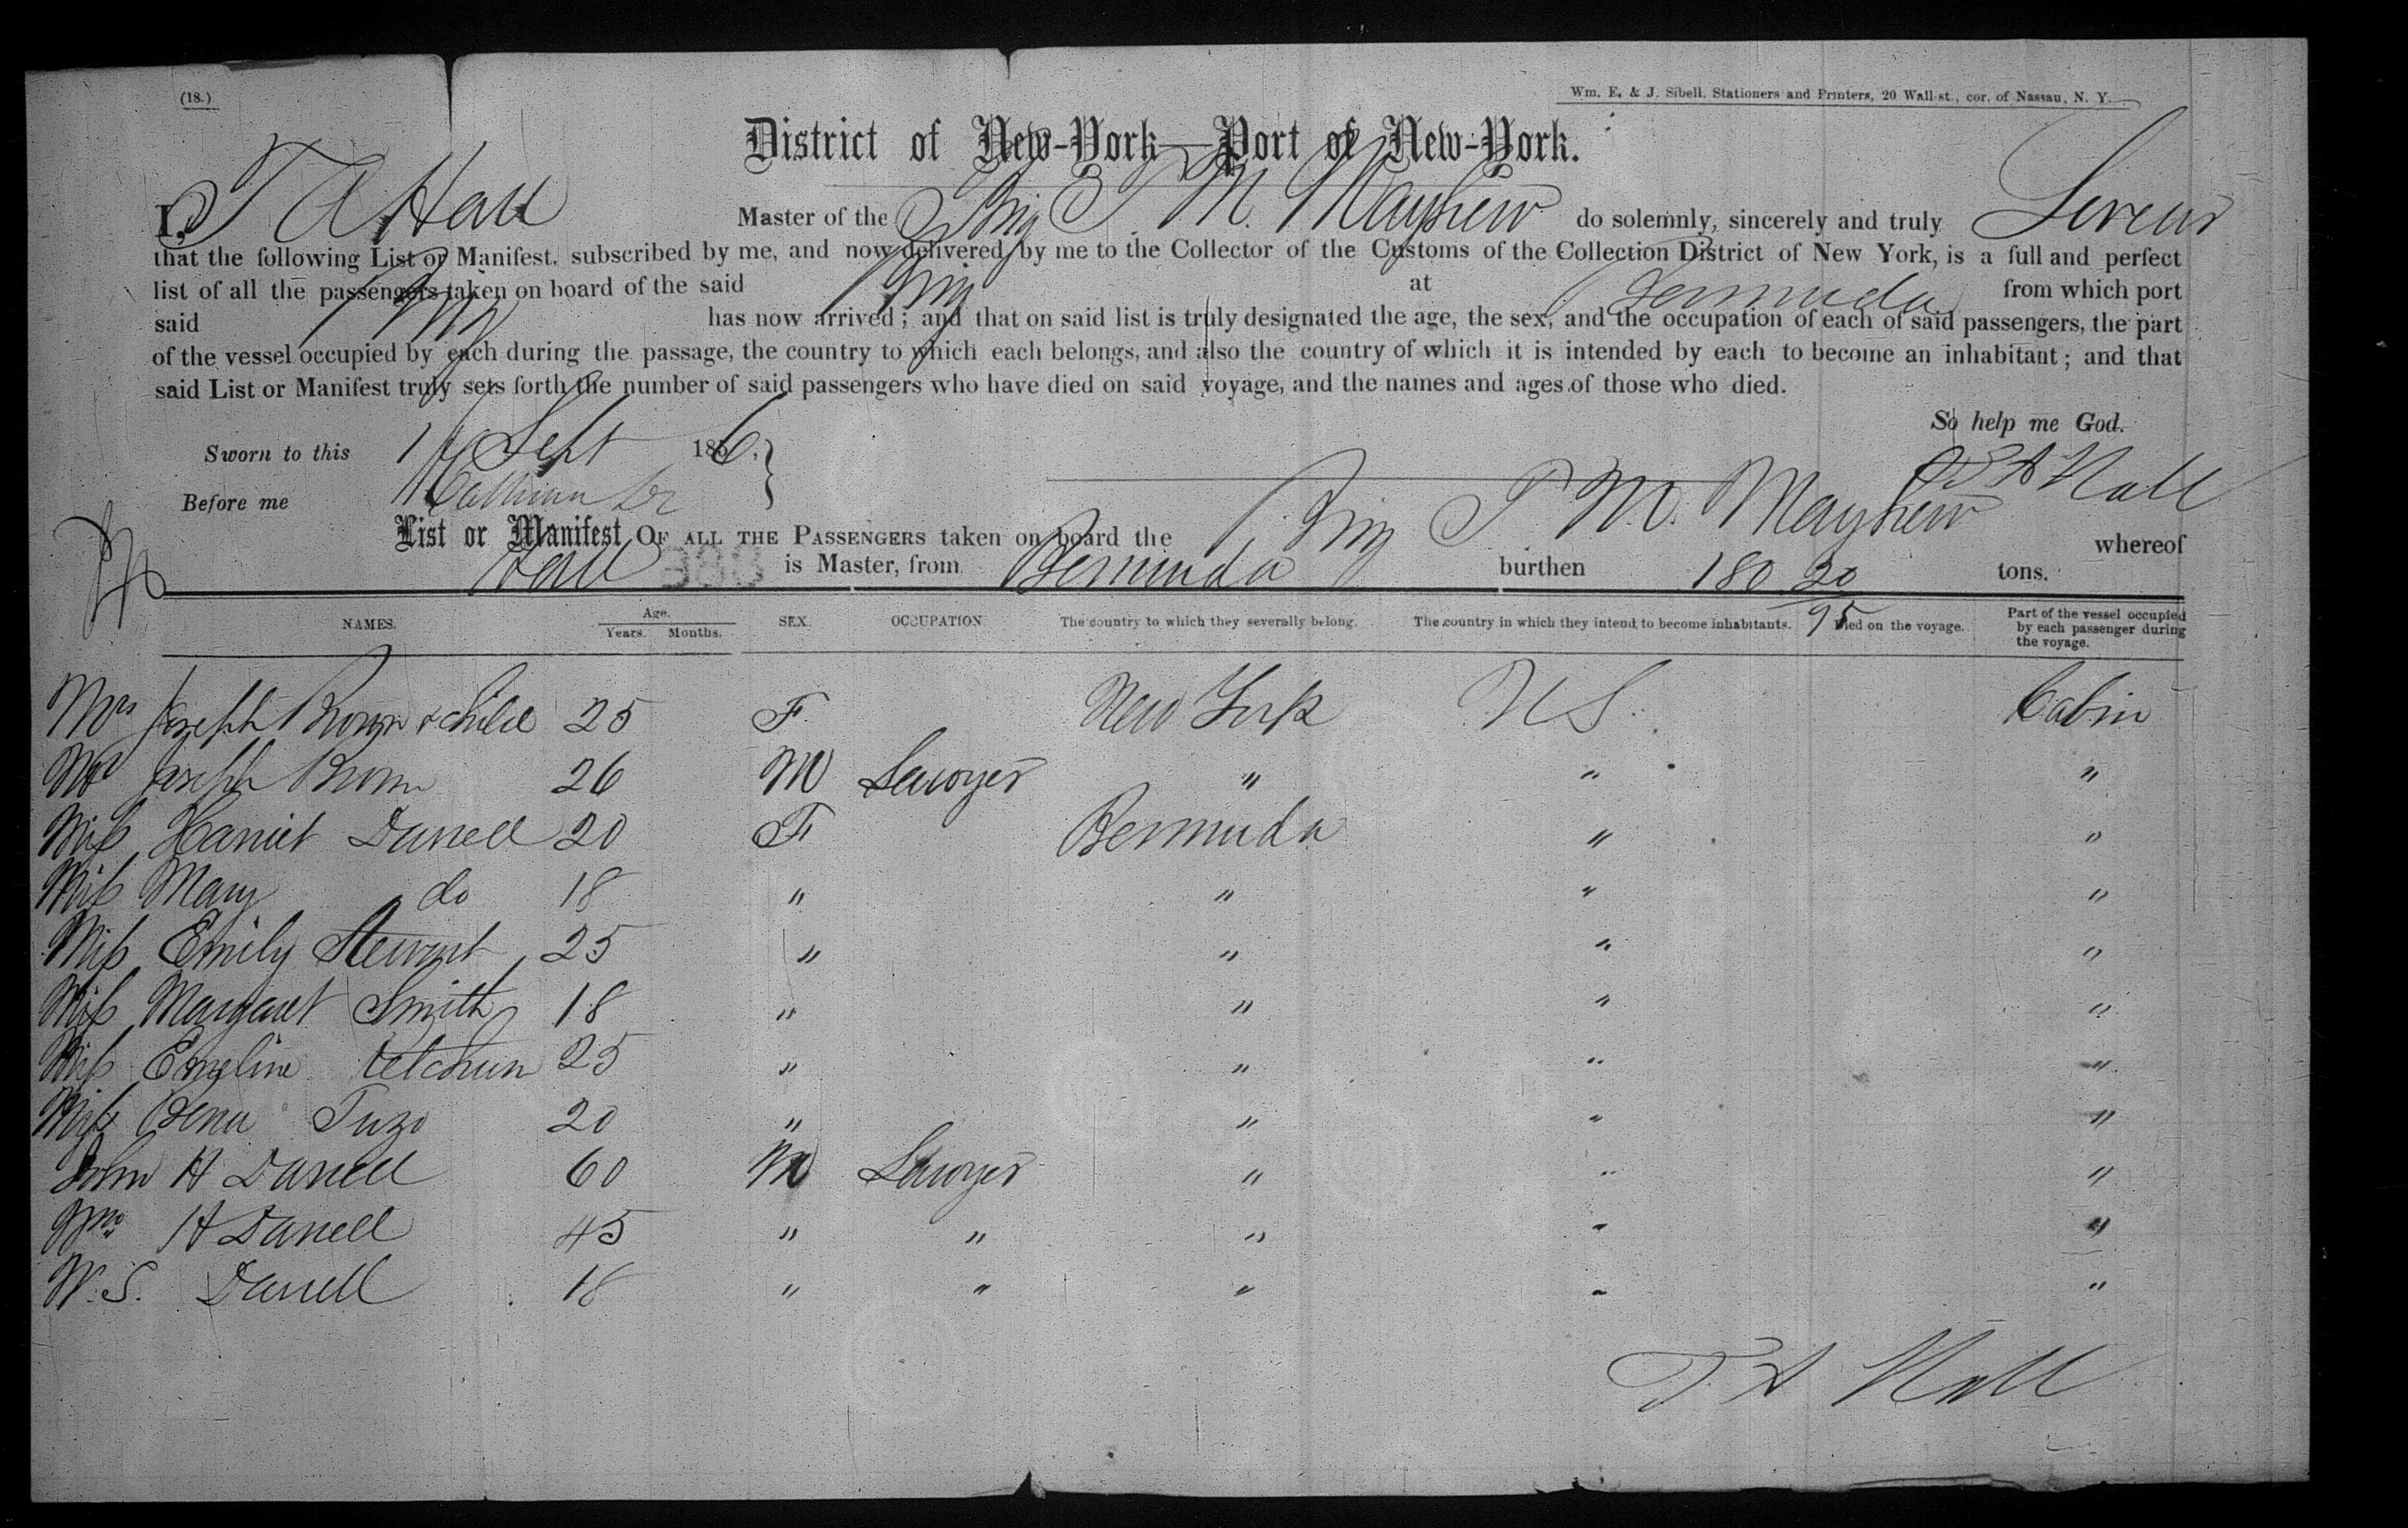 (18.)
Wm. E. & J. Sibell, Stationers and Printers, 20 Wall-st., cor. of Nassau, N. Y.
District of New-York—Port of New-York.
I, T A Hall Master of the Brig T. M. Mayhew do solemnly, sincerely and truly Swear
that the following List or Manifest, subscribed by me, and now delivered by me to the Collector of the Customs of the Collection District of New York, is a full and perfect
list of all the passengers taken on board of the said Brig at Bermuda from which port
said Brig has now arrived; and that on said list is truly designated the age, the sex, and the occupation of each of said passengers, the part
of the vessel occupied by each during the passage, the country to which each belongs, and also the country of which it is intended by each to become an inhabitant; and that
said List or Manifest truly sets forth the number of said passengers who have died on said voyage, and the names and ages of those who died.
So help me God.
Sworn to this Sept 1856,
T A Hall
Before me
List or Manifest OF ALL THE PASSENGERS taken on board the Brig T. M. Mayhew whereof
Hall is Master, from Bermuda burthen 180 20/95 tons.
NAMES. Age. Years. Months. SEX. OCCUPATION. The country to which they severally belong. The country in which they intend to become inhabitants. Died on the voyage. Part of the vessel occupied by each passenger during the voyage.
Mrs Joseph Brown & child 25 F. New York U S. Cabin
Mr Joseph Brown 26 M Lawyer " " "
Miss Harriet Darrell 20 F Bermuda " "
Miss Mary do 18 " " " "
Miss Emily Stewart 25 " " " "
Miss Margaret Smith 18 " " " "
Miss Emeline 25 " " " "
Miss Tuzo 20 " " " "
John H Darrell 60 M Lawyer " " "
Wm H Darrell 45 " " " " "
W. S. Darrell 18 " " " " "
T. A Hall